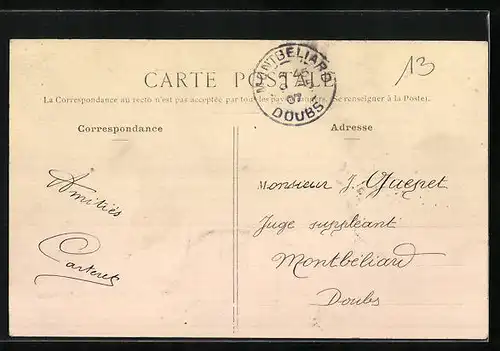 MONTBELIARD
07
DOUBS
13
CARTE POSTALE
La Correspondance au recto n'est pas acceptée par tous les pays étrangers. (Se renseigner à la Poste).
Correspondance
Adresse
Amitiés
Carteret
Monsieur J.
Juge suppléant
Montbéliard
Doubs